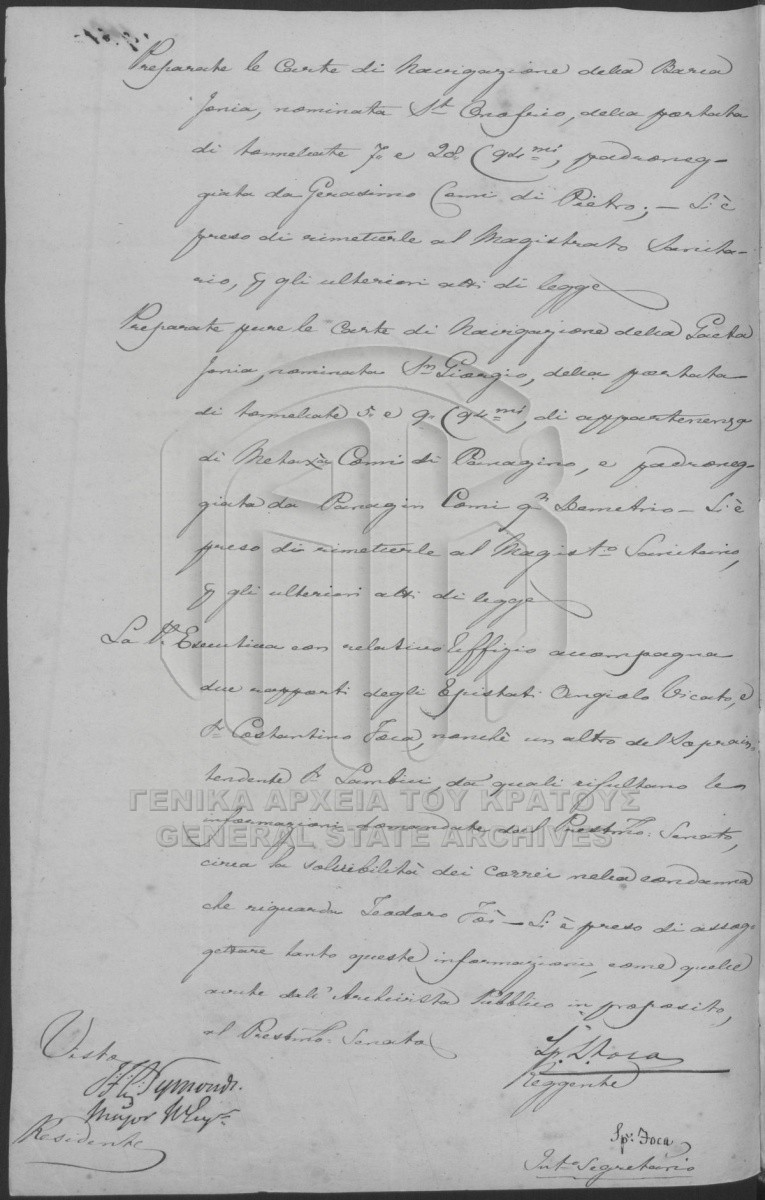 Preparate le Carte di Navigazione della Barca
Jonia, nominata St. Onofrio, della portata
di tonnellate 7. e 28. (94mi, padroneg-
giata da Gerasimo Comi di Pietro; — Si è
preso di rimetterle al Magistrato Sanita-
rio, p gli ulteriori atti di legge
Preparate pure le Carte di Navigazione della Gaeta
Jonia, nominata Sn Giorgio, della portata
di tonnellate 5. e 9. (94mi, di appartenenza
di Metaxà Comi di Panagino, e padroneg-
giata da Panagin Comi qm Demetrio — Si è
preso di rimetterle al Magisto Sanitario,
p gli ulteriori atti di legge
La Pe Esecutiva con relativo Uffizio accompagna
due rapporti degli Epistati Angiolo Vicato, e
Sr Costantino Foca, nonchè un altro del Soprain-
tendente Sr Lambiri, da quali risultano le
informazioni domandate dal Prestmo: Senato,
circa la solvibilità dei Correi nella condanna
che riguarda Teodoro — Si è preso di assog-
gettare tanto queste informazioni, come quelle
avute dall' Archivista Pubblico in proposito,
al Prestmo: Senato
Visto
Reggente
Major
Residente
Sp: Foca
Into Segretario
ΓΕΝΙΚΑ ΑΡΧΕΙΑ ΤΟΥ ΚΡΑΤΟΥΣ
GENERAL STATE ARCHIVES